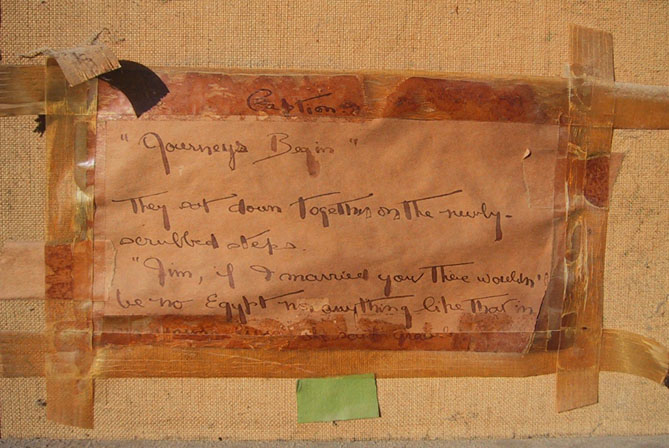 Caption
"Journeys Begin"
They sat down together on the newly-
scrubbed steps.
"Jim, if I married you there wouldn't
be no Egypt nor anything like that in